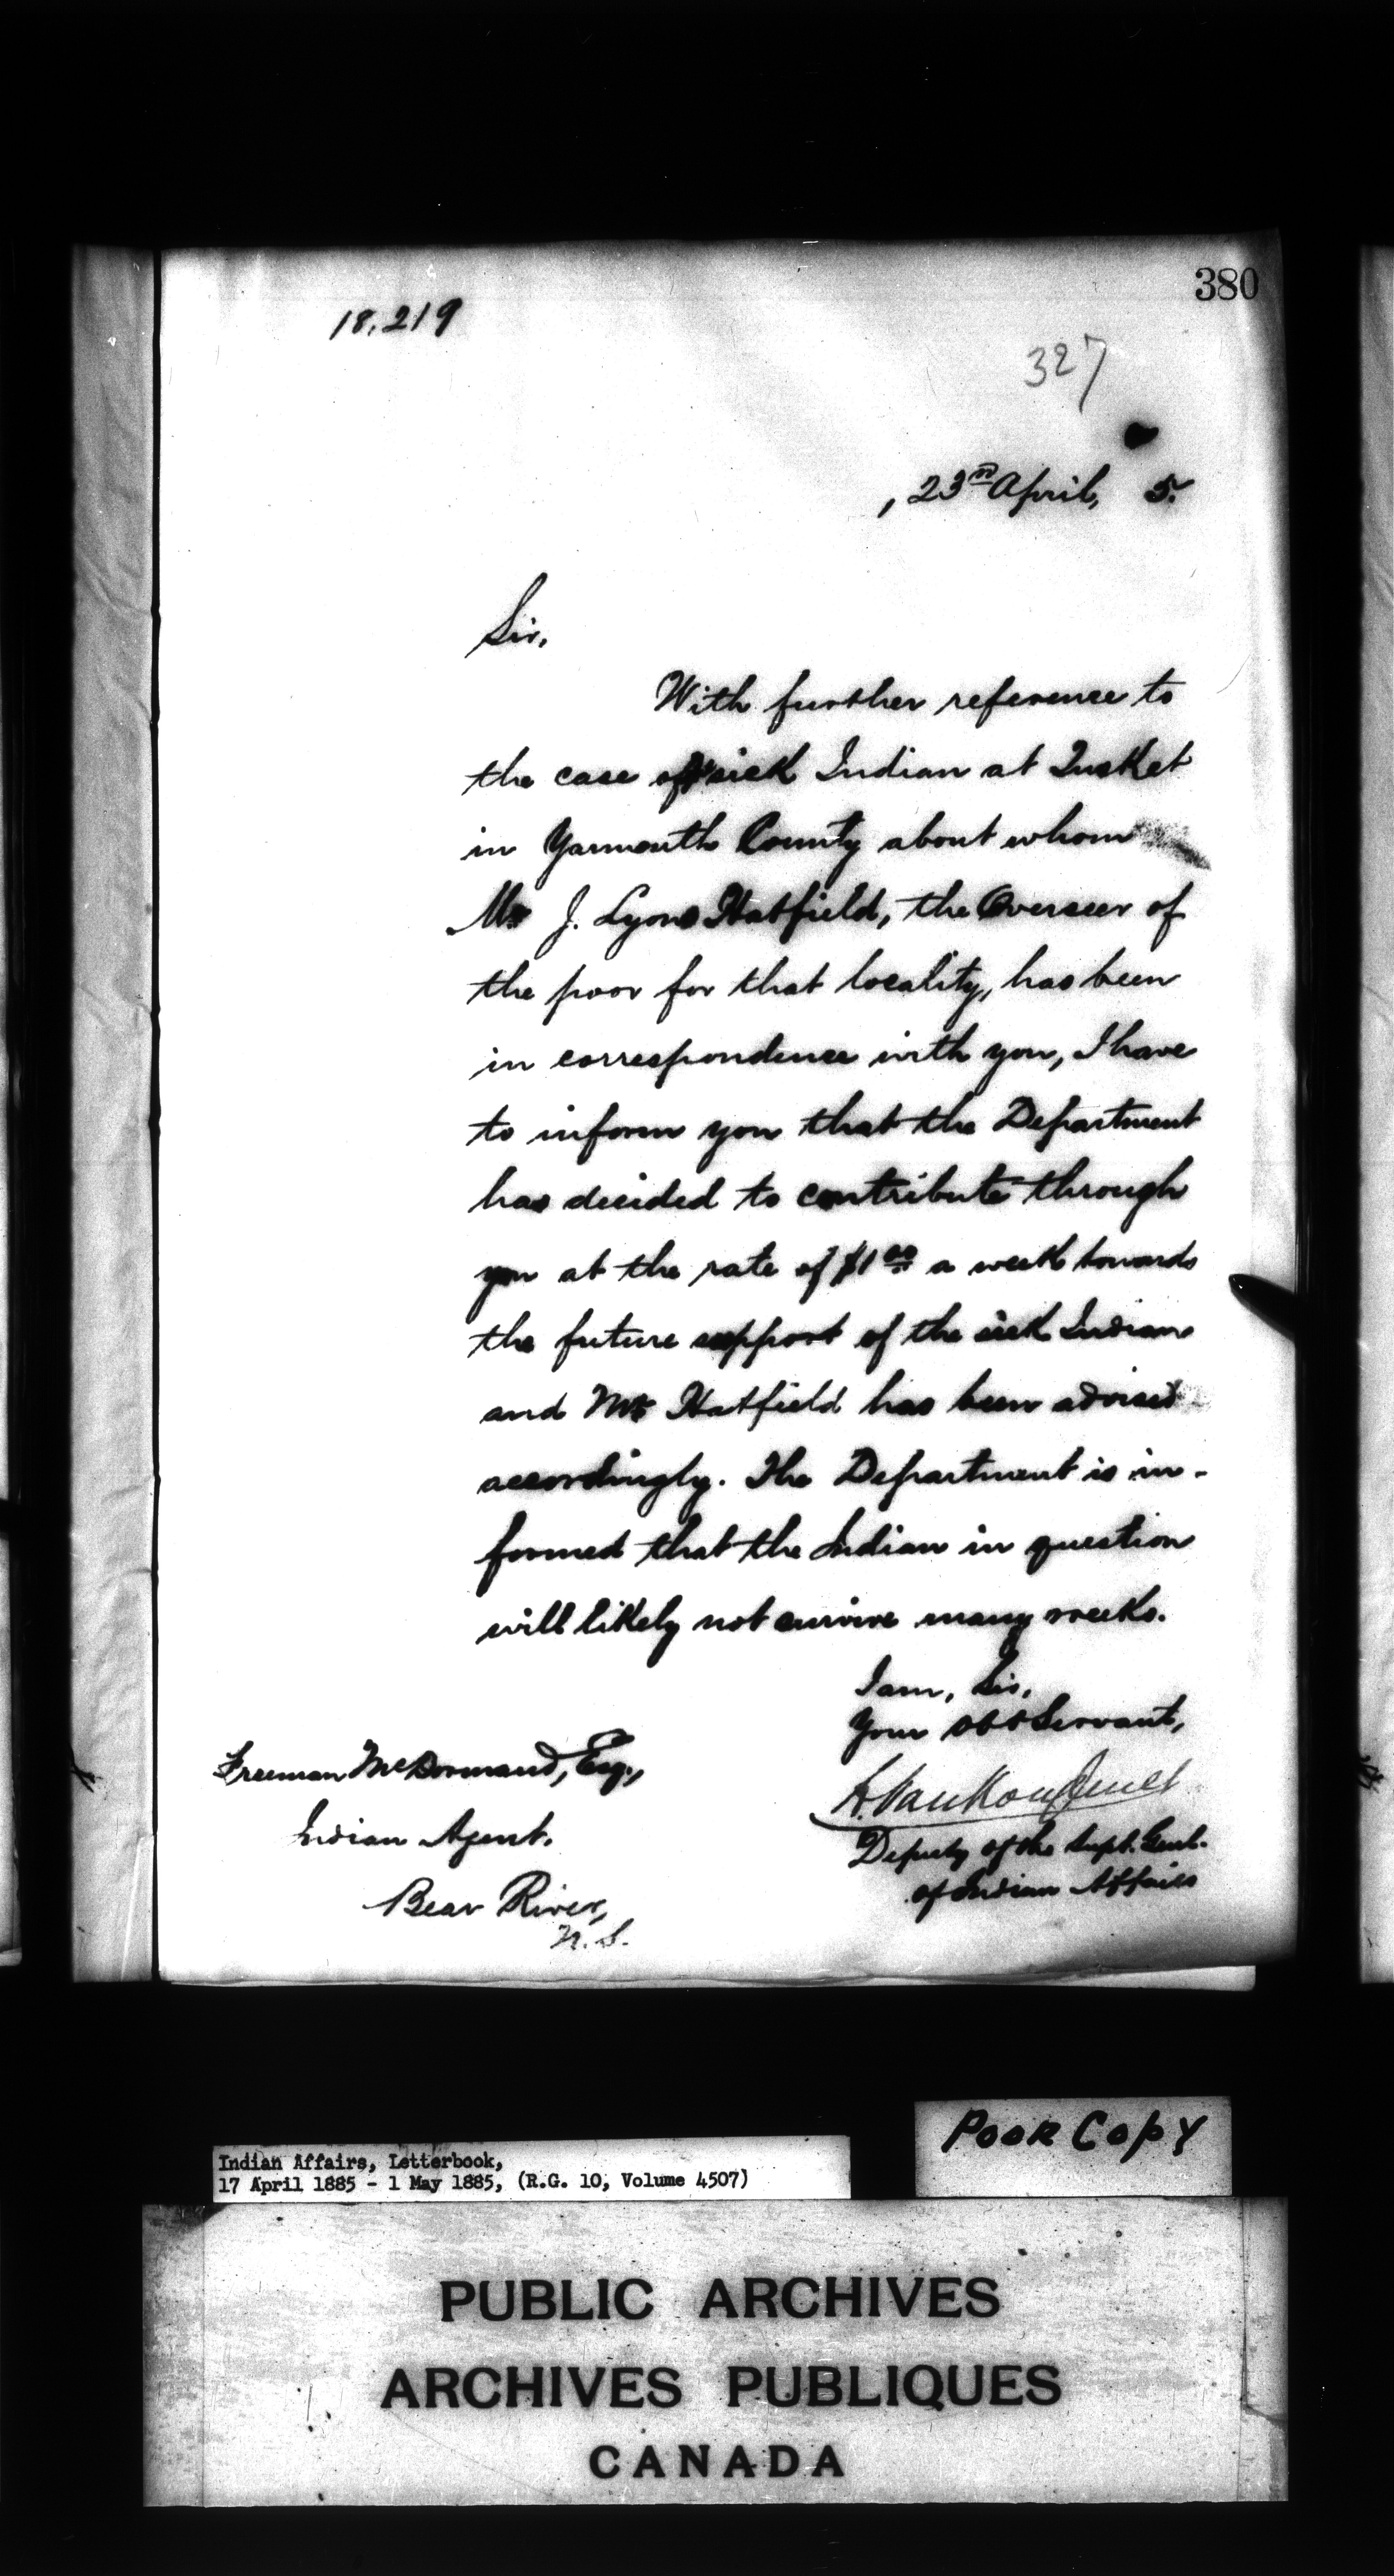 380
18,219
327
, 23rd April, 5.
Sir,
With further reference to
the case of sick Indian at Tusket
in Yarmouth County about whom
Mr J. Lyons Hatfield, the Overseer of
the poor for that locality, has been
in correspondence with you, I have
to inform you that the Department
has decided to contribute through
you at the rate of $1.00 a week towards
the future support of the sick Indian
and Mr Hatfield has been advised
accordingly. The Department is in-
formed that the Indian in question
will likely not survive many weeks.
I am, Sir,
Your obt Servant,
L. VanKoughnet
Deputy of the Supt. Genl.
of Indian Affairs
Freeman McDormand, Esq.,
Indian Agent.
Bear River,
N.S.
POOR COPY
Indian Affairs, Letterbook,
17 April 1885 - 1 May 1885, (R.G. 10, Volume 4507)
PUBLIC ARCHIVES
ARCHIVES PUBLIQUES
CANADA